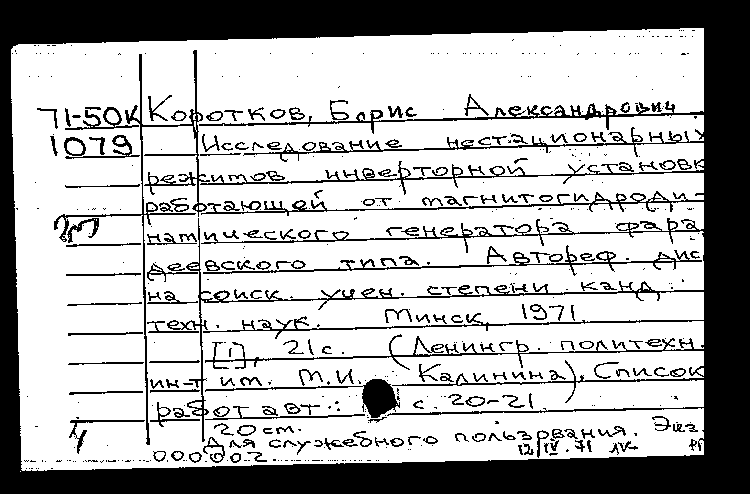 71-50к Коротков, Борис Александрович
1079 Исследование нестационарных
режимов инверторной установк
работающей от магнитогидроди-
намического генератора фара
деевского типа. Автореф. дис
на соиск. учен. степени канд.
техн. наук. Минск, 1971
[1], 21с. (Ленингр. политехн.
ин-т им. М.И. Калинина). Список
работ авт.: с. 20-21
20 см.
Для служебного пользрвания. Экз.
000002. 12/IV.71